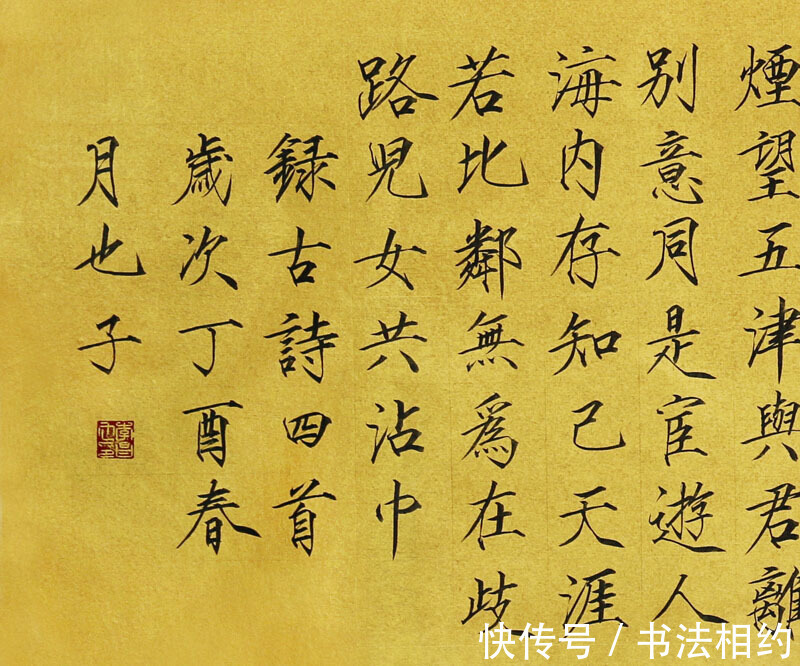 煙望五津與君離
别意同是宦遊人
海内存知己天涯
若比鄰無爲在歧
路兒女共沾巾
録古詩四首
歲次丁酉春
月也子
快传号 / 书法相约